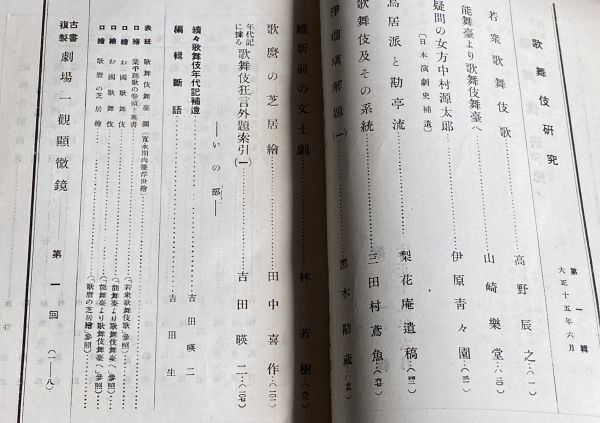 歌舞伎研究
第一輯
大正十五年六月
若衆歌舞伎歌……高野辰之…(一)
能舞臺より歌舞伎舞臺へ……山崎樂堂
疑問の女方中村源太郎……伊原青々園
[日本演劇史補遺]
鳥居派と勘亭流……梨花庵遺稿
歌舞伎及その系統……三田村鳶魚
淨瑠璃解題(一)……黑木勘藏
維新前の文士劇……林若樹
歌麿の芝居繪……田中喜作
年代記に據る歌舞伎狂言外題索引(一)……吉田暎二
——いの部——
續々歌舞伎年代記補遺……吉田暎二
編輯斷話……吉田生
表紙 歌舞伎舞臺圖(寬永用肉筆浮世繪)
口繪 業平踊歌の卷頭と奧書……(若衆歌舞伎歌參照)
口繪 お國歌舞伎……(能舞臺より歌舞伎舞臺へ參照)
口繪 お國歌舞伎……(能舞臺より歌舞伎舞臺へ參照)
口繪 歌麿の芝居繪……(歌麿の芝居繪參照)
古書複製 劇場一觀顯微鏡——第一回(一—八)